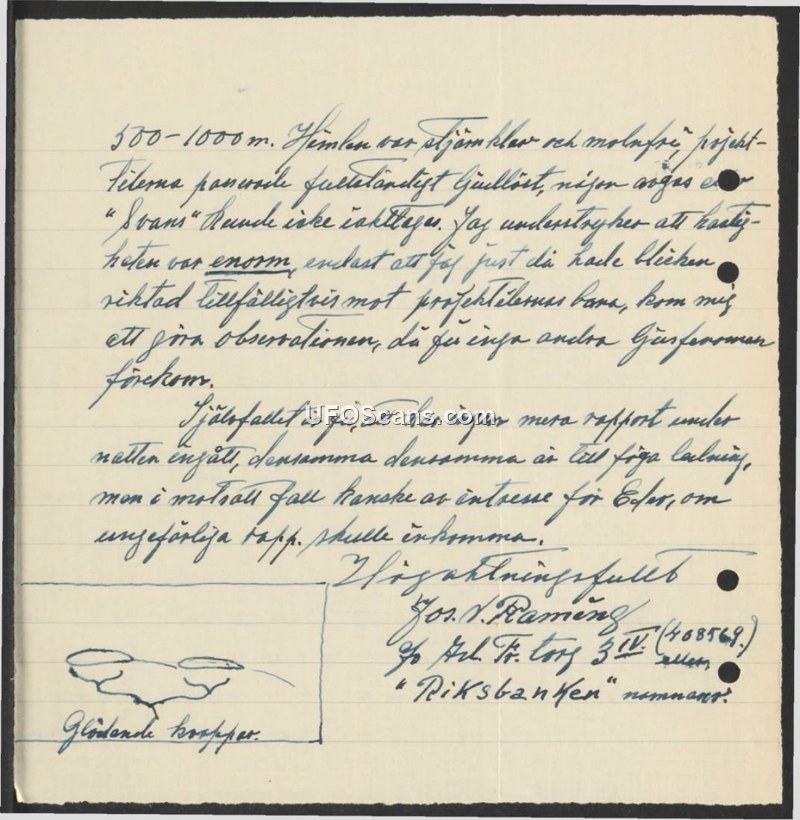 500-1000 m. Himlen var stjärnklar och molnfri, projek-
tilerna passerade fullständigt ljudlöst, någon avgas eller
"Svans" kunde icke iakttagas. Jag understryker att hastig-
heten var enorm, endast att jag just då hade blicken
riktad tillfälligtvis mot projektilernas bana, kom mig
att göra observationen, då för inga andra ljusfenomen
förekom.
Självfallet är, att om ingen mera rapport under
natten ingått, densamma densamma är till föga ledning,
men i motsatt fall kanske av intresse för Eder, om
ungefärliga rapp. skulle inkomma.
Högaktningsfullt
Jos. V.
c/o Ad. Fr. torg 3 IV. (408569.)
eller
"Riksbanken"
Glödande kroppar.
UFOScans.com